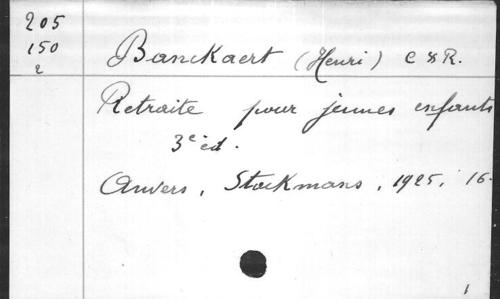 205
150
2
Banckaert (Henri) C SS R.
Retraite pour jeunes enfants
3e éd.
Anvers, Stockmans, 1925, 16-
1